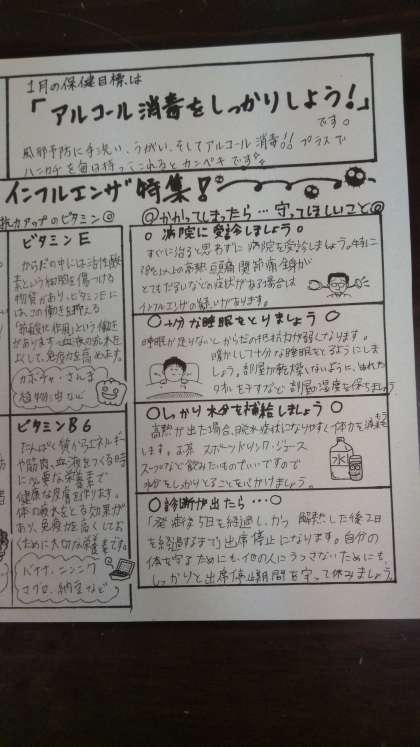 1月の保健目標は
「アルコール消毒をしっかりしよう!」
です。
風邪予防に手洗い、うがい、そしてアルコール消毒!! プラスで
ハンカチを毎日持ってこれるとカンペキです
インフルエンザ特集!
抗力アップのビタミン
ビタミンE
からだの中には活性酸
素という細胞を傷つける
物質があり、ビタミンEに
はこの働きを抑える
という働きが
あります。血液の流れを
よくして、免疫力を高めます。
カボチャ・さんま
植物油など
ビタミンB6
たんぱく質からエネルギー
や筋肉、血液をつくる時
に必要な栄養素で
健康な皮膚を作ります。
体の疲れをとる効果が
あり、免疫力を高くしてお
くために大切な栄養素です。
バナナ、ニンニク
マグロ、納豆など
@かかってしまったら…守ってほしいこと@
○病院に受診しましょう○
すぐに治ると思わずに病院を受診しましょう。特に
38℃以上の高熱 頭痛 関節痛 全身が
とてもだるいなどの症状がある場合は
インフルエンザの疑いがあります。
○十分な睡眠をとりましょう○
睡眠が足りないと、からだの抵抗力が弱くなります。
暖かくして十分な睡眠をとるようにしま
しょう。部屋が乾燥しないように、ぬれた
タオルを干すなど部屋の湿度を保ちましょう
○しっかり水分を補給しましょう○
高熱が出た場合、脱水症状になりやすく体力を消耗
します。お茶 スポーツドリンク・ジュース
スープなど飲みたいものでいいですので
水分をしっかりとることを心がけましょう。
水
○診断が出たら…○
「発症後5日を経過し、かつ 解熱した後2日
を経過するまで」出席停止になります。自分の
体を守るためにも、他の人にうつさないためにも、
しっかりと出席停止期間を守って休みましょう。